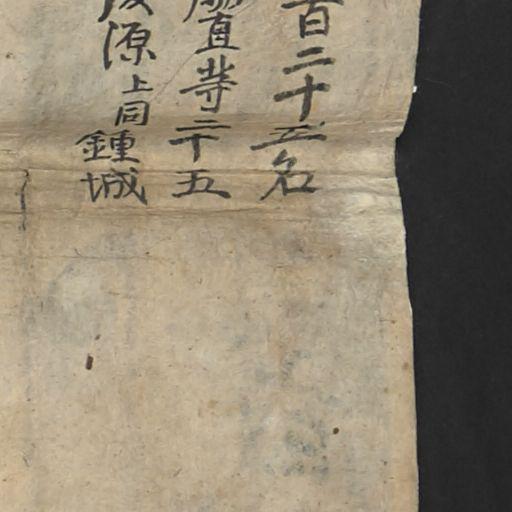 百二十五名
直等二十五
源上同鍾城